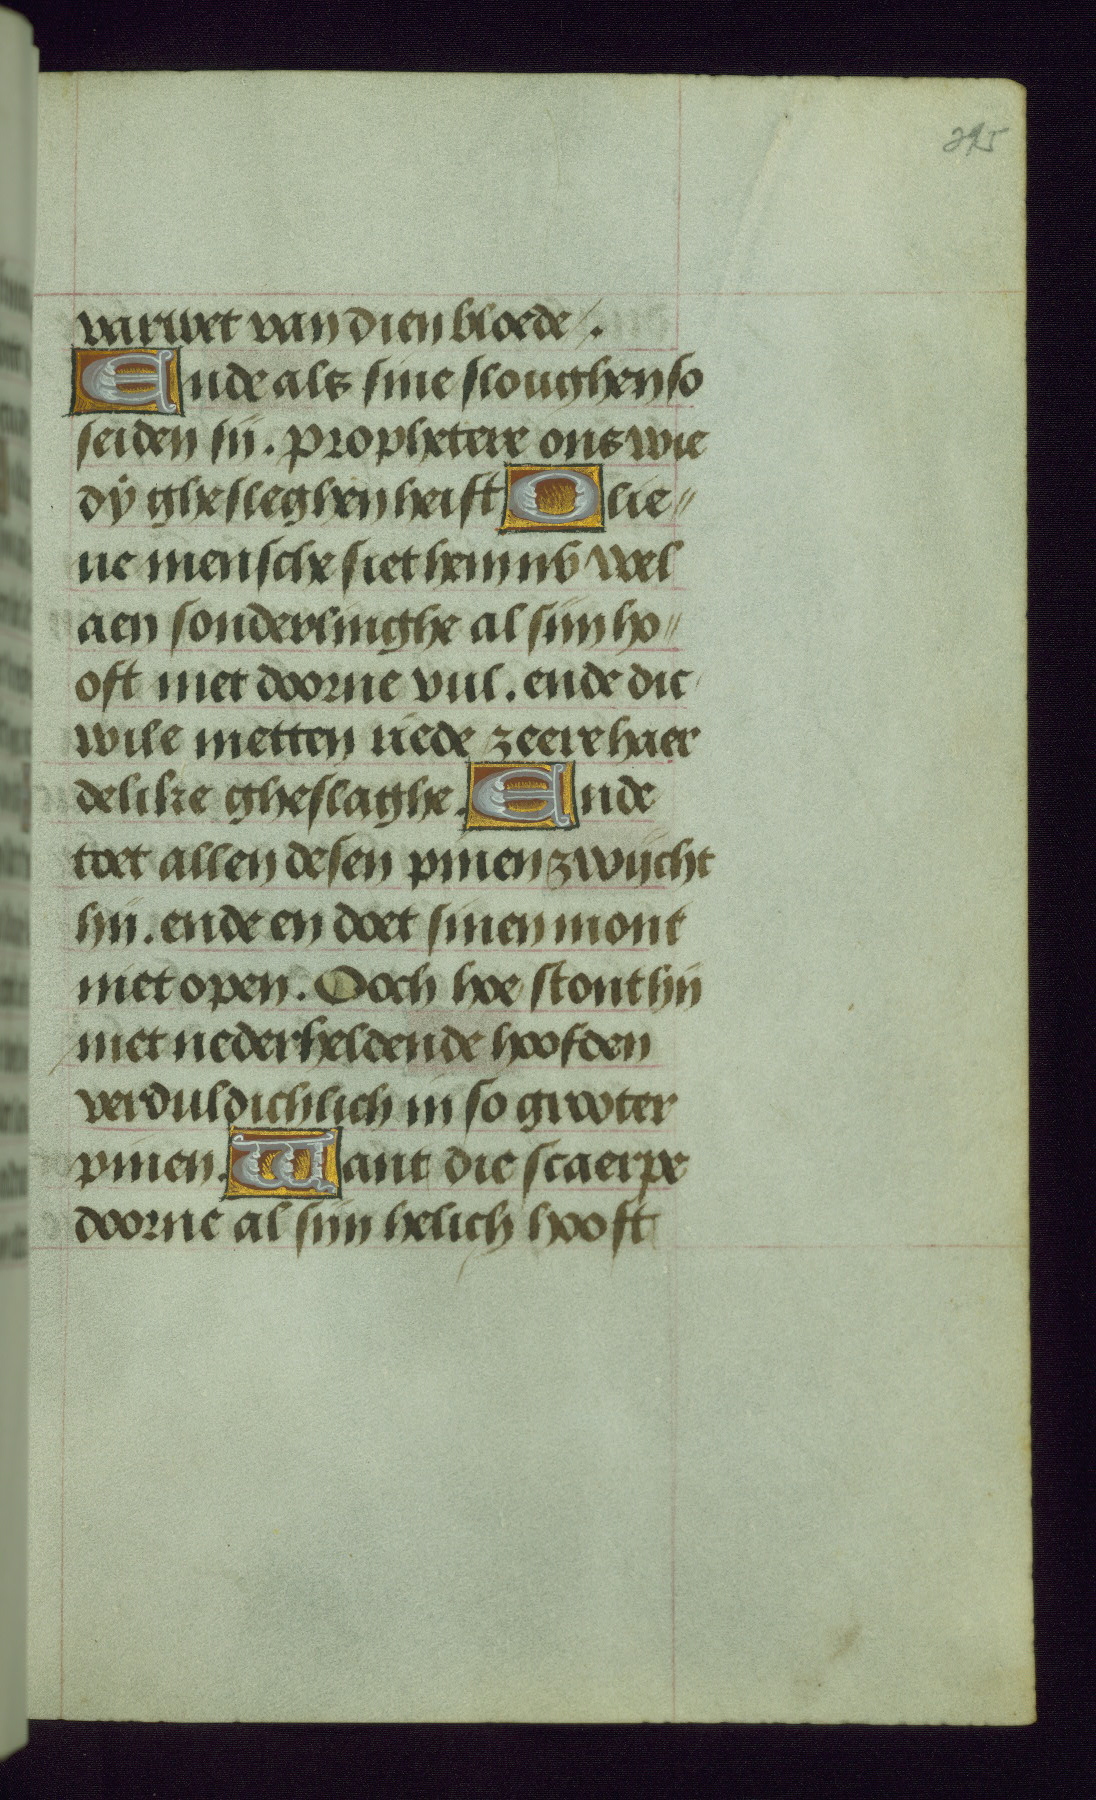 295
varwet van dien bloede / .
Ende als sine sloughen so
seiden sij. Prophetere ons wie
dÿ ghesleghen heift O lie〃
ue mensche siet hem nv wel
aen sonderlinghe al sijn ho〃
oft met doorne vul. ende die
wile metten riede zeere haer
delike gheslaghe. Ende
toet allen desen pinen zwijcht
hij. ende en doet sinen mont
niet open. Ooch hoe stont hij
met nederheldende hoofden
verduldichlich in so grooter
pinen. Want die scaerpe
doorne al sijn helich hooft